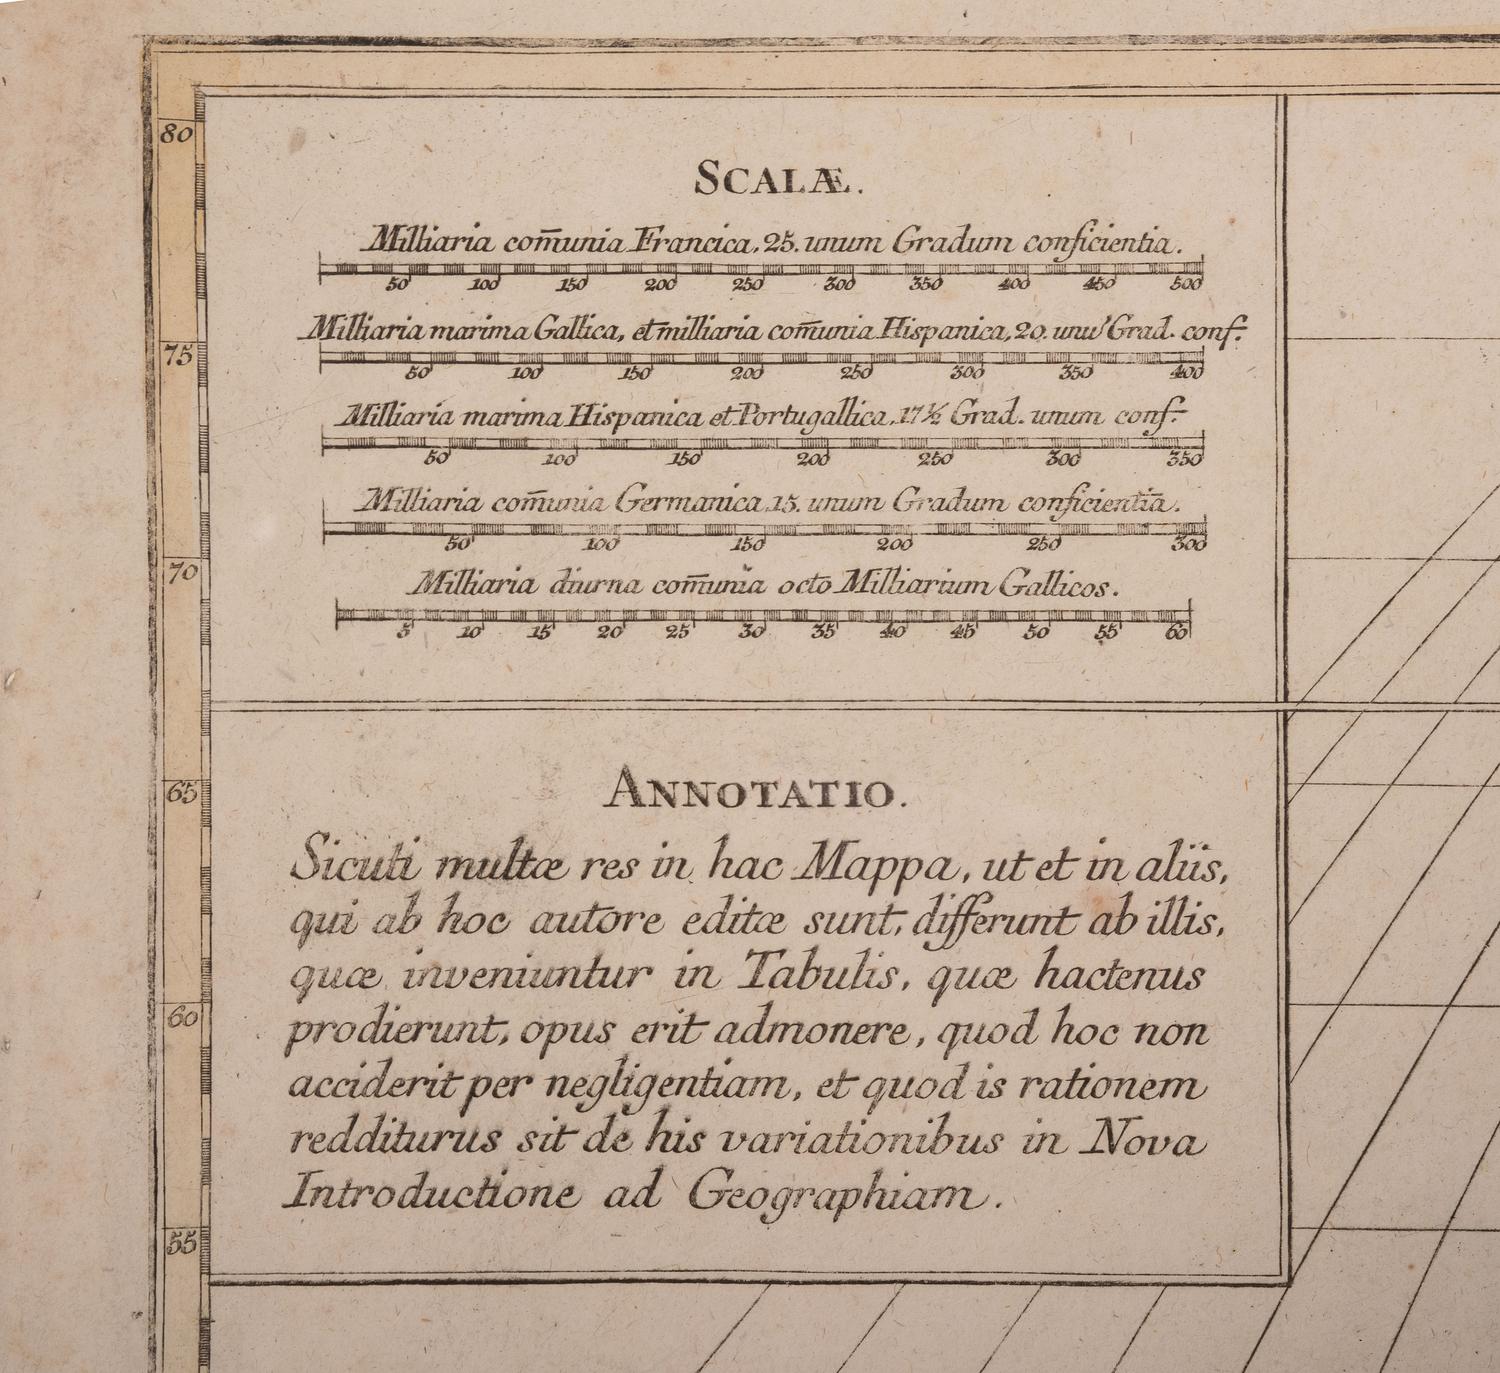 80
SCALÆ.
Milliaria com̄unia Francica, 25. unum Gradum conficientia.
50 100 150 200 250 300 350 400 450 500
Milliaria marima Gallica, et milliaria com̄unia Hispanica, 20. unu' Grad. conf:
75
50 100 150 200 250 300 350 400
Milliaria marima Hispanica et Portugallica, 17½ Grad. unum conf:
50 100 150 200 250 300 350
Milliaria com̄unia Germanica 15. unum Gradum conficientia.
50 100 150 200 250 300
70
Milliaria diurna com̄unia octo Milliarium Gallicos.
5 10 15 20 25 30 35 40 45 50 55 60
65
ANNOTATIO.
Sicuti multæ res in hac Mappa, ut et in aliis,
qui ab hoc autore editæ sunt, differunt ab illis,
quæ inveniuntur in Tabulis, quæ hactenus
60
prodierunt, opus erit admonere, quod hoc non
acciderit per negligentiam, et quod is rationem
redditurus sit de his variationibus in Nova
Introductione ad Geographiam.
55